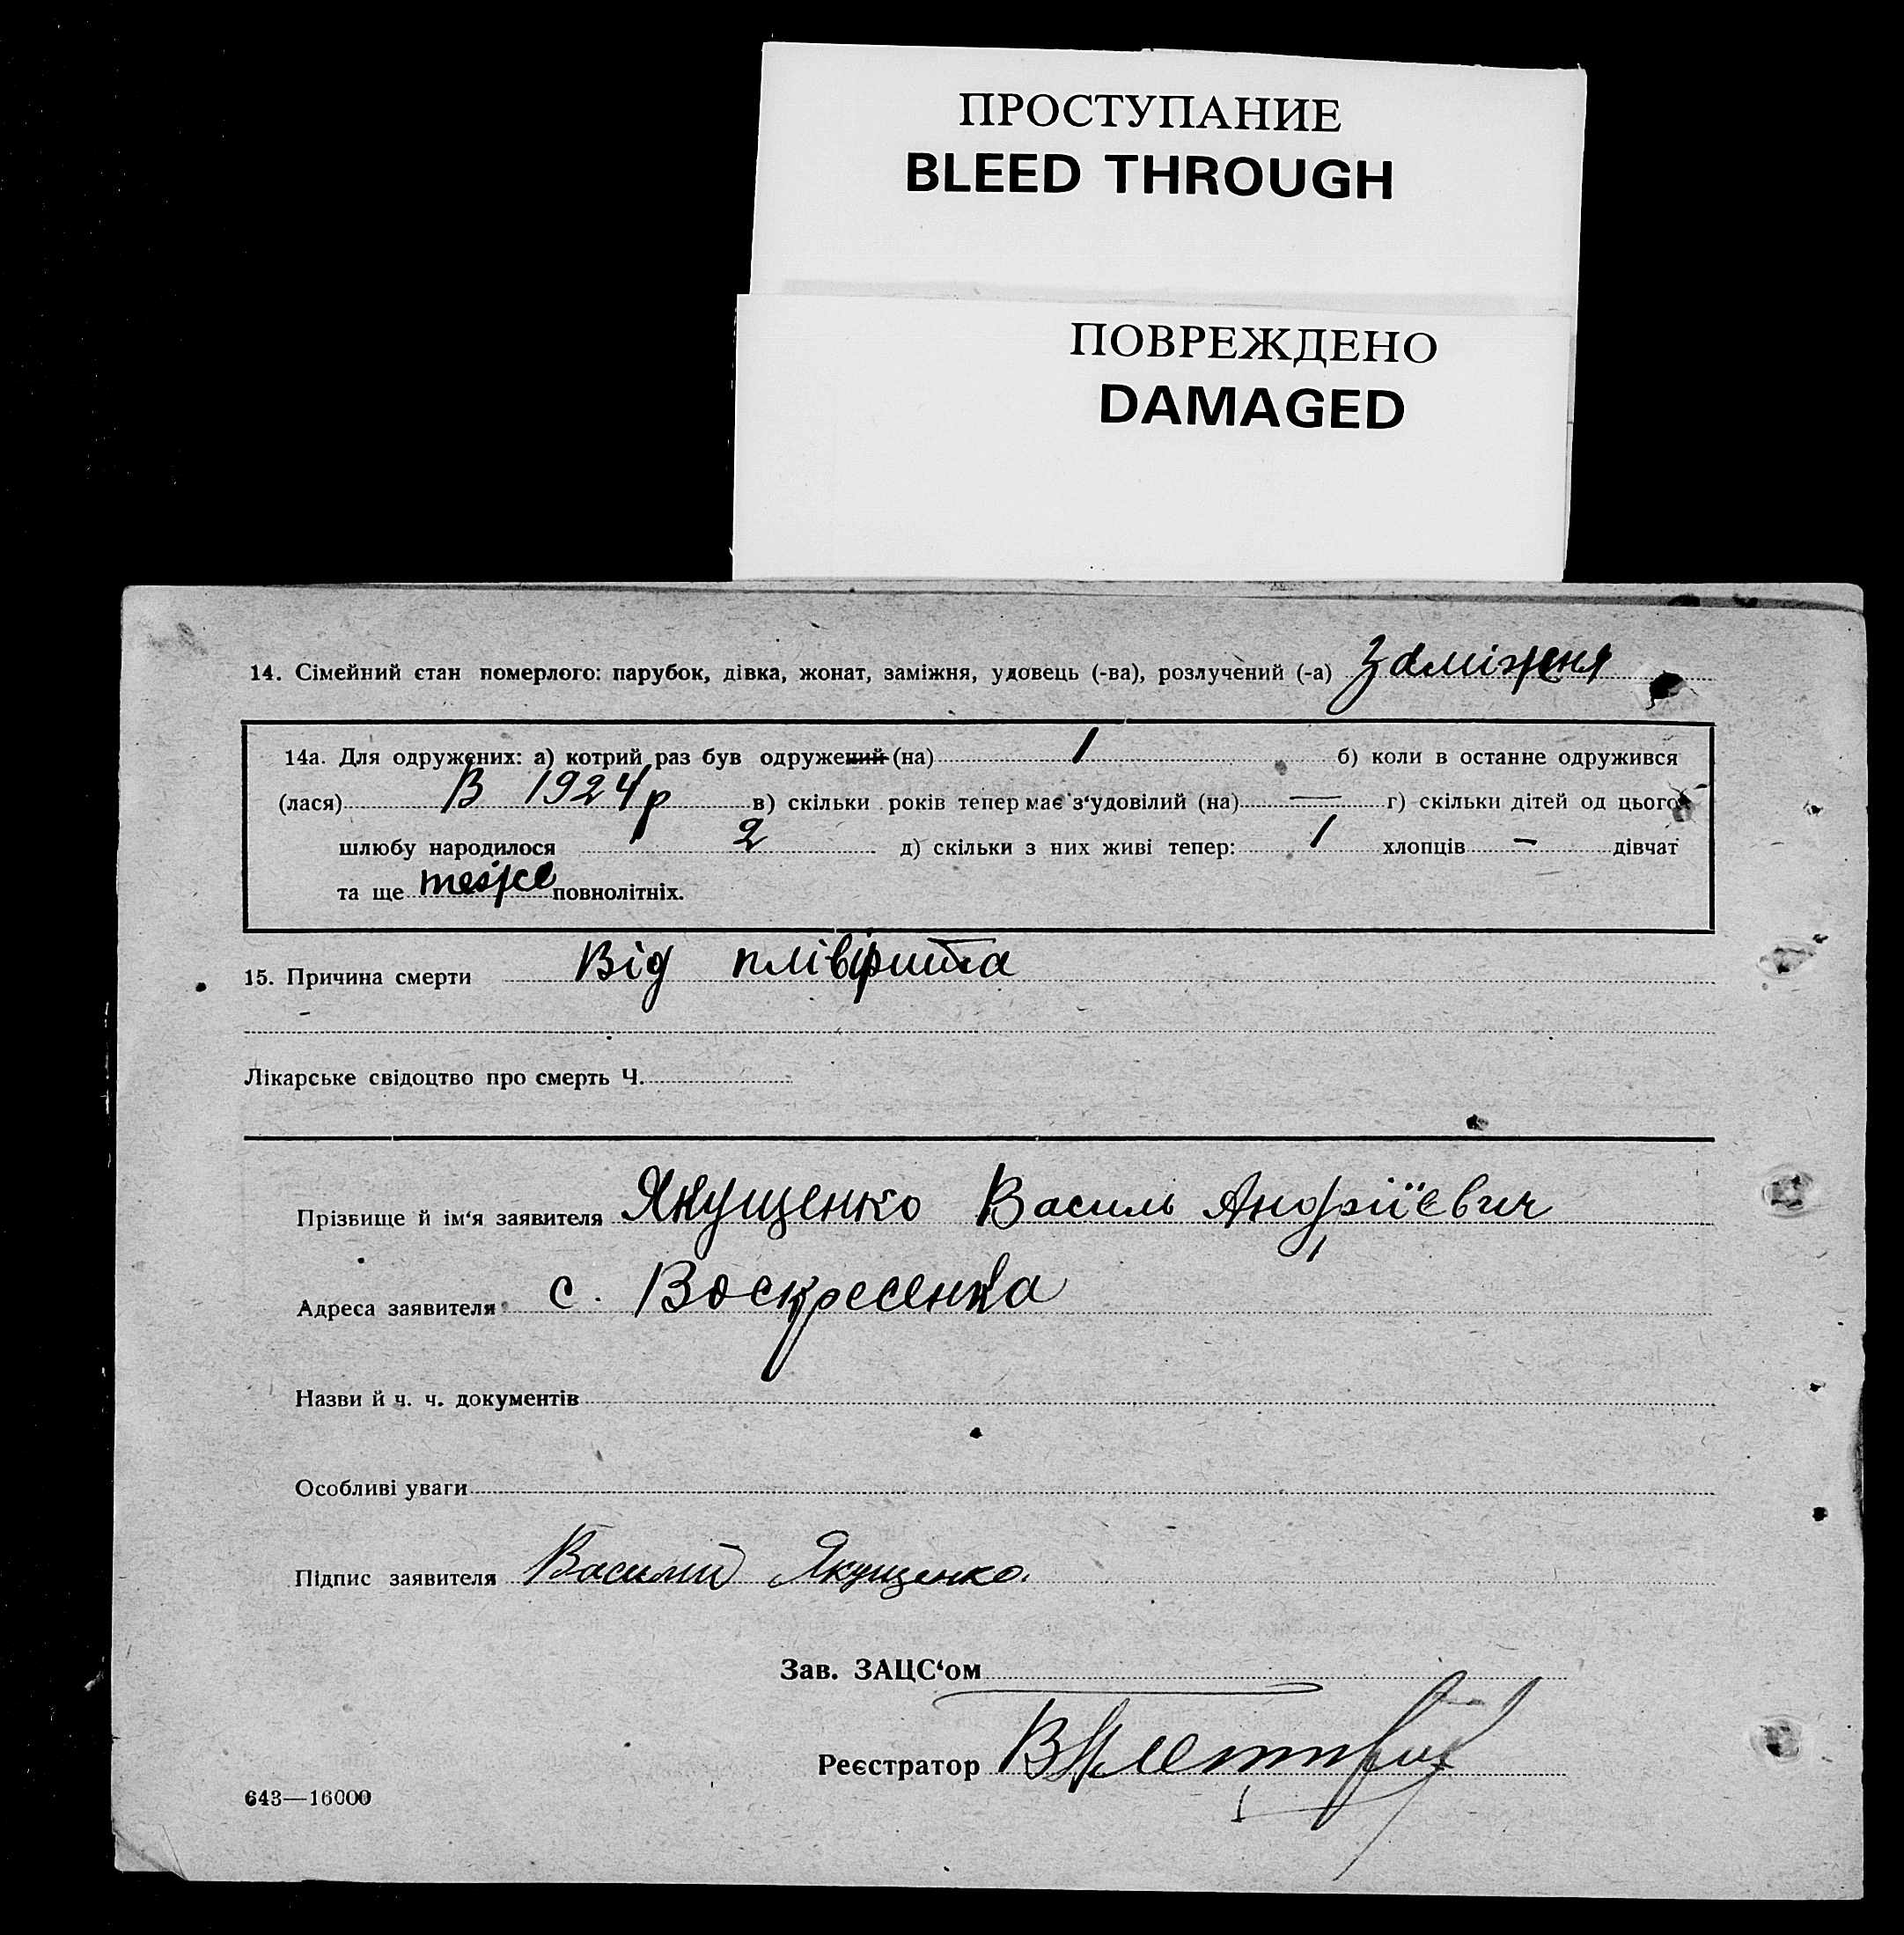 ПРОСТУПАНИЕ
BLEED THROUGH
ПОВРЕЖДЕНО
DAMAGED
14. Сімейний стан померлого: парубок, дівка, жонат, заміжня, удовець (-ва), розлучений (-а) Заміжня
14а. Для одружених: а) котрий раз був одружений (на) 1 б) коли в останнє одружився
(лася) В 1924 р в) скільки років тепер має з‘удовілий (на) — г) скільки дітей од цього
шлюбу народилося 2 д) скільки з них живі тепер: 1 хлопців — дівчат
та ще теж повнолітніх.
15. Причина смерти Від плівфита
Лікарське свідоцтво про смерть Ч.
Прізвище й ім‘я заявителя Якущенко Василь Андріївич
Адреса заявителя с. Воскресенка
Назви й ч. ч. документів
Особливі уваги
Підпис заявителя Василий Якущенко.
Зав. ЗАЦС‘ом
Реєстратор
643—16000